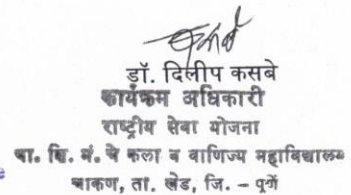 डॉ. दिलीप कसबे
कार्यक्रम अधिकारी
राष्ट्रीय सेवा योजना
वा. शि. मं. चे कला व वाणिज्य महाविद्यालय
चाकण, ता. खेड, जि. – पुणें